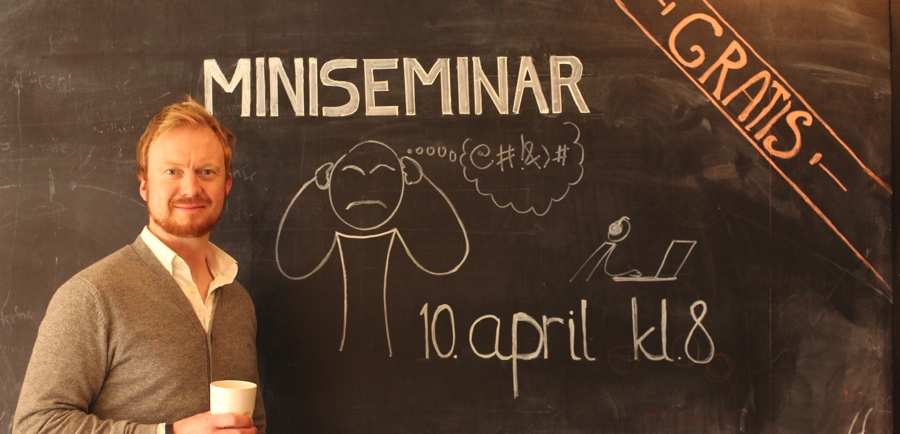 MINISEMINAR
GRATIS!
{@#!&)#
10. april kl.8